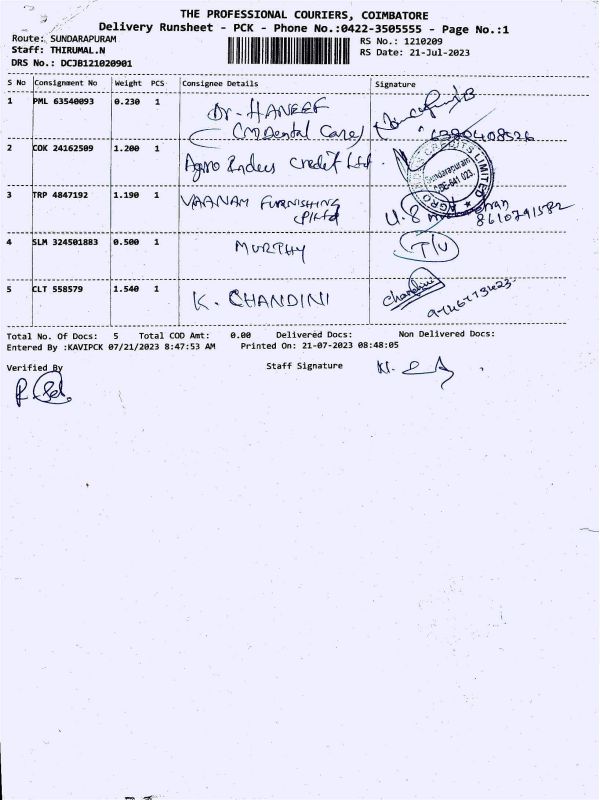 THE PROFESSIONAL COURIERS, COIMBATORE
Delivery Runsheet - PCK - Phone No.:0422-3505555 - Page No.:1
Route: SUNDARAPURAM RS No.: 1210209
Staff: THIRUMAL.N RS Date: 21-Jul-2023
DRS No.: DCJB121020901
S No Consignment No Weight PCS Consignee Details Signature
1 PML 63540093 0.230 1 Dr. HANEEF
(CMDental Care)
2 COK 24162509 1.200 1 Agro Indus Credit Ltd
AGRO CREDITS LIMITED
Sundarapuram
CBE-641 023.
3 TRP 4847192 1.190 1 VAANAM FURNISHING
P Ltd 8610791582
4 SLM 324501883 0.500 1 MURTHY
5 CLT 558579 1.540 1 K. CHANDINI Chandini
Total No. Of Docs: 5 Total COD Amt: 0.00 Delivered Docs: Non Delivered Docs:
Entered By :KAVIPCK 07/21/2023 8:47:53 AM Printed On: 21-07-2023 08:48:05
Verified By Staff Signature